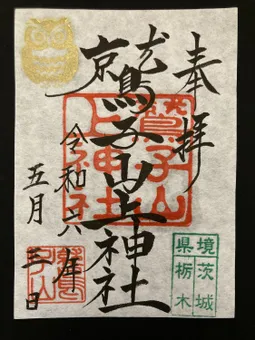 奉拝
鷲子山上神社
令和六年
五月三日
鷲子山上神社
鷲子山
境
茨城県
栃木